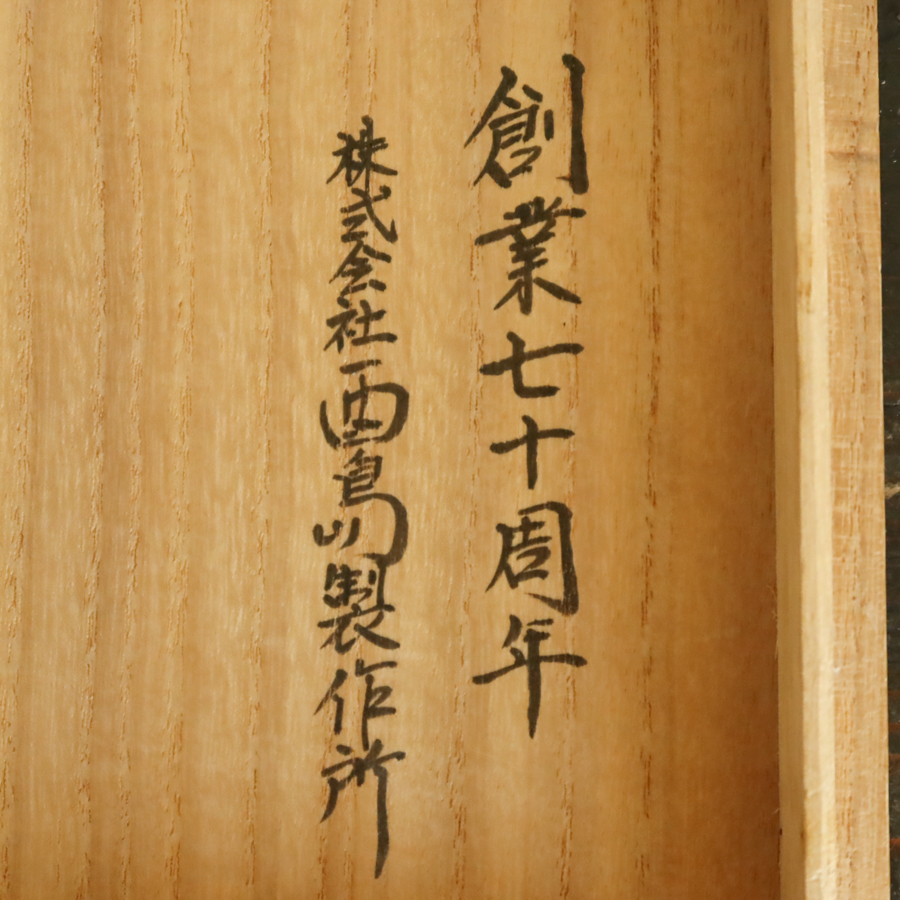 創業七十周年
株式会社酉島製作所